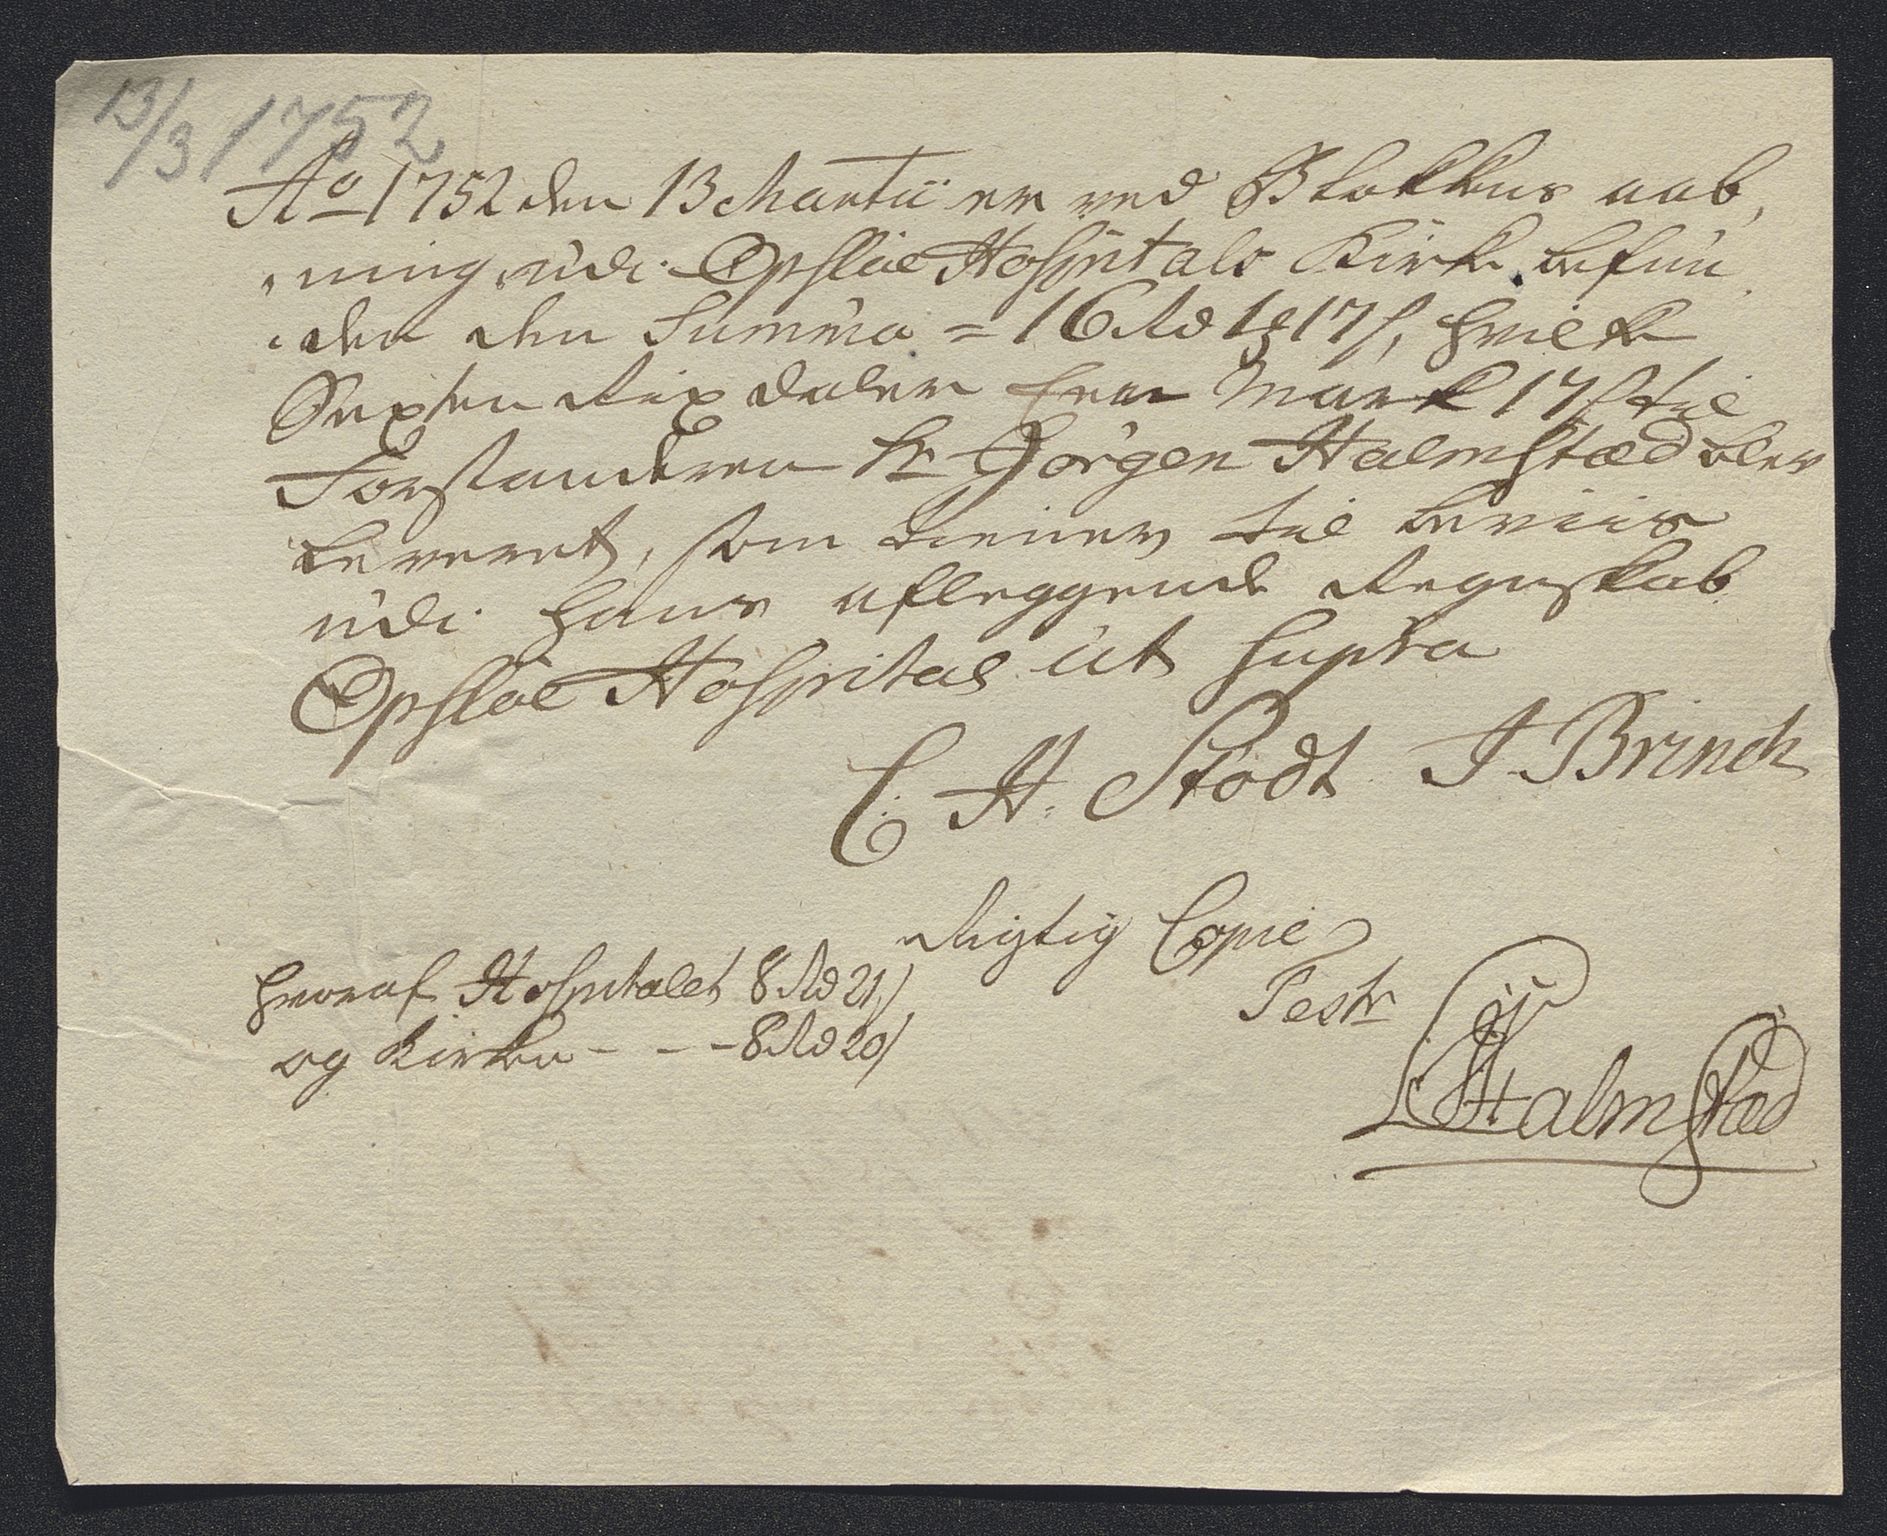 13/3 1752
Ao 1752 den 13 Martii er ved Blokkens aab,
,ning udi Opsloe Hospitals Kirke befun
,den den Summa = 16 Rd 1 ß 17 s, hvilke
Sexten Rix daler Een Mark 17 s til
Forstanderen Sr Jörgen Halmstæd blev
leveret, som tiener til beviis
udi hans aflæggende Regnskab
Opsloe Hospital ut supra
C. H. Stodt J. Brinch
Rigtig Copie
hvoraf Hospitalet 8 Rd 21 s
Test
og Kirken - - - 8 Rd 20 s
Halmsted